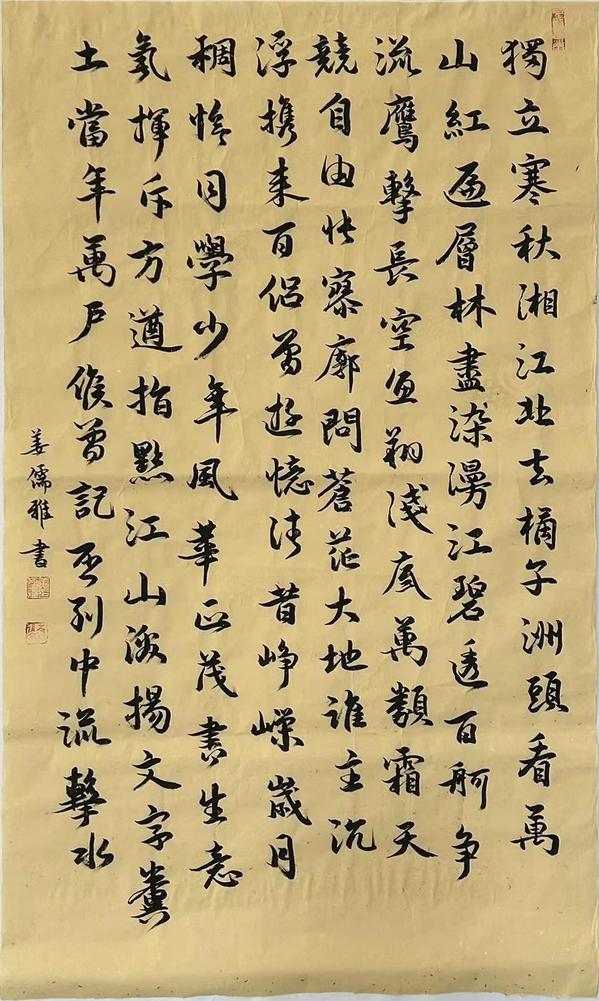 獨立寒秋湘江北去橘子洲頭看萬
山紅遍層林盡染漫江碧透百舸争
流鷹擊長空魚翔淺底萬類霜天
競自由怅寥廓問蒼茫大地誰主沉
浮携来百侣曾遊憶往昔峥嵘歲月
稠恰同學少年風華正茂書生意
氣揮斥方遒指點江山激揚文字糞
土當年萬户侯曾記否到中流擊水
姜儒雅書